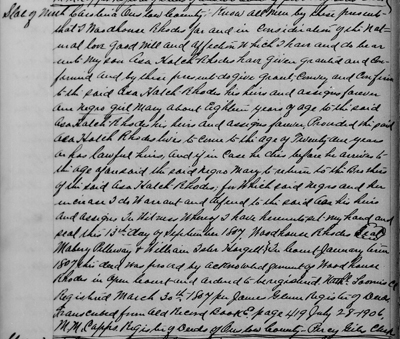 State of North Carolina Onslow County. Know all men by these presents
that I Woodhouse Rhodes for and in Consideration of the Nat-
ural love Good Will and affection Which I have and do bear
unto My son Asa Hatch Rhodes have given granted and Con-
firmed And by these presents do give grant, Convey and Confirm
to the said Asa Hatch Rhodes his heirs and assigns forever
one negro girl Mary about Eighteen years of age to the said
Asa Hatch Rhodes his heirs and assigns forever, Provided the said
Asa Hatch Rhodes lives to come to the age of Twenty one years
or has lawful heirs, and if in Case he dies before he arrives to
the age aforesaid the said negro Mary to return to the brothers
of the said Asa Hatch Rhodes, for Which said negro and her
increase I do Warrant and defend to the said Asa his heirs
and assigns In Witness Whereof I have hereunto set my hand and
seal this 13th day of September 1807 Woodhouse Rhodes Seal
William John In Court January term
1807 this deed was proved by acknowledgement of Woodhouse
Rhodes in Open Court and ordered to be registered Nath. Loomis CC
Registered March 30th 1807 per James Glenn Register of Deeds
Transcribed from Old Record Book page 419 July 28 1906,
M.M. Capps Register of Deeds of Onslow County Percy Clerk